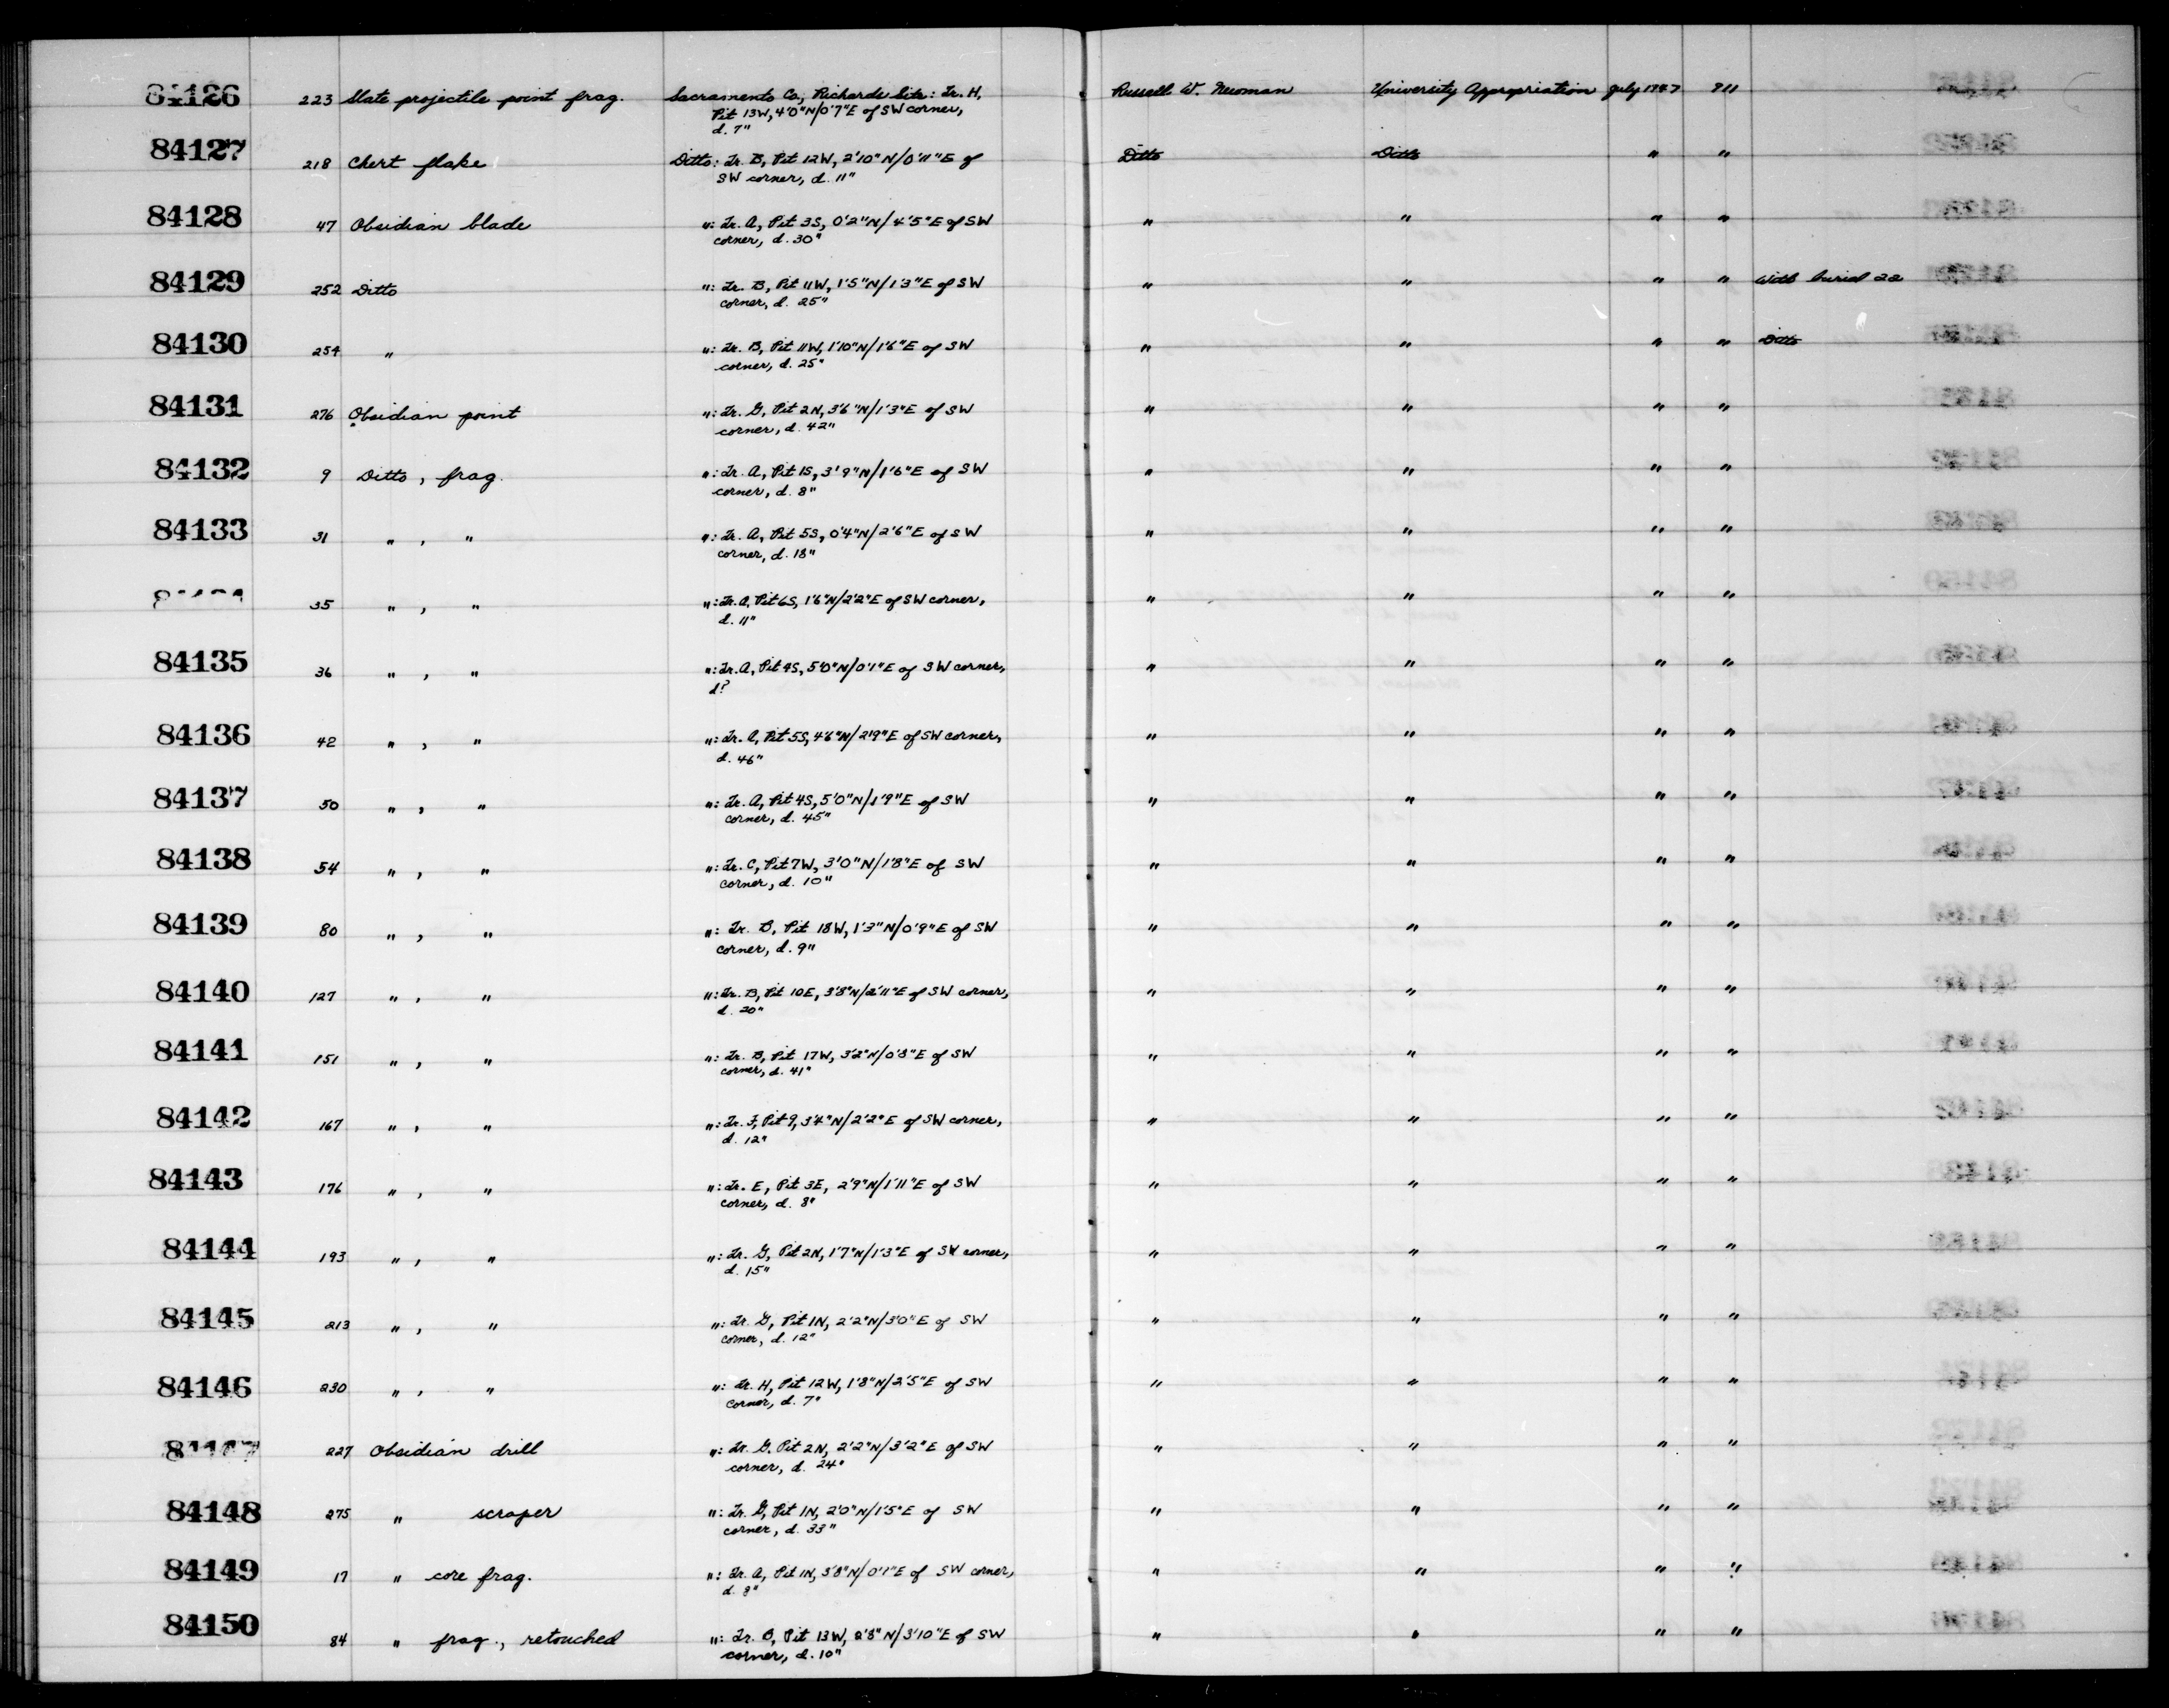 84126 223 Slate projectile point frag. Sacramento Co., Richards Site: Tr. H, Russell W. Newman University Appropriation July 1947 711
Pit 13W, 4'0"N/0'7"E of SW corner,
d. 7"
84127 218 Chert flake Ditto: Tr. B, Pit 12W, 2'10"N/0'11"E of Ditto Ditto " "
SW corner, d. 11"
84128 47 Obsidian blade ": Tr. A, Pit 3S, 0'2"N/4'5"E of SW " " " "
corner, d. 30"
84129 252 Ditto ": Tr. B, Pit 11W, 1'5"N/1'3"E of SW " " " " With burial 22
corner, d. 25"
84130 254 " ": Tr. B, Pit 11W, 1'10"N/1'6"E of SW " " " " Ditto
corner, d. 25"
84131 276 Obsidian point ": Tr. G, Pit 2N, 3'6"N/1'3"E of SW " " " "
corner, d. 42"
84132 9 Ditto, frag. ": Tr. A, Pit 1S, 3'9"N/1'6"E of SW " " " "
corner, d. 8"
84133 31 " , " ": Tr. A, Pit 5S, 0'4"N/2'6"E of SW " " " "
corner, d. 18"
35 " , " ": Tr. A, Pit 6S, 1'6"N/2'2"E of SW corner, " " " "
d. 11"
84135 36 " , " ": Tr. A, Pit 4S, 5'0"N/0'1"E of SW corner, " " " "
d?
84136 42 " , " ": Tr. A, Pit 5S, 4'6"N/2'9"E of SW corner, " " " "
d. 46"
84137 50 " , " ": Tr. A, Pit 4S, 5'0"N/1'9"E of SW " " " "
corner, d. 45"
84138 54 " , " ": Tr. C, Pit 7W, 3'0"N/1'8"E of SW " " " "
corner, d. 10"
84139 80 " , " ": Tr. B, Pit 18W, 1'3"N/0'9"E of SW " " " "
corner, d. 9"
84140 127 " , " ": Tr. B, Pit 10E, 3'8"N/2'11"E of SW corner, " " " "
d. 20"
84141 151 " , " ": Tr. B, Pit 17W, 3'2"N/0'8"E of SW " " " "
corner, d. 41"
84142 167 " , " ": Tr. F, Pit 9, 3'4"N/2'2"E of SW corner, " " " "
d. 12"
84143 176 " , " ": Tr. E, Pit 3E, 2'9"N/1'11"E of SW " " " "
corner, d. 8"
84144 193 " , " ": Tr. G, Pit 2N, 1'7"N/1'3"E of SW corner, " " " "
d. 15"
84145 213 " , " ": Tr. G, Pit 1N, 2'2"N/3'0"E of SW " " " "
corner, d. 12"
84146 230 " , " ": Tr. H, Pit 12W, 1'8"N/2'5"E of SW " " " "
corner, d. 7"
84147 227 Obsidian drill ": Tr. G, Pit 2N, 2'2"N/3'2"E of SW " " " "
corner, d. 24"
84148 275 " scraper ": Tr. G, Pit 1N, 2'0"N/1'5"E of SW " " " "
corner, d. 33"
84149 17 " core frag. ": Tr. A, Pit 1N, 3'8"N/0'7"E of SW corner, " " " "
84150 84 " frag., retouched ": Tr. B, Pit 13W, 2'8"N/3'10"E of SW " " " "
corner, d. 10"